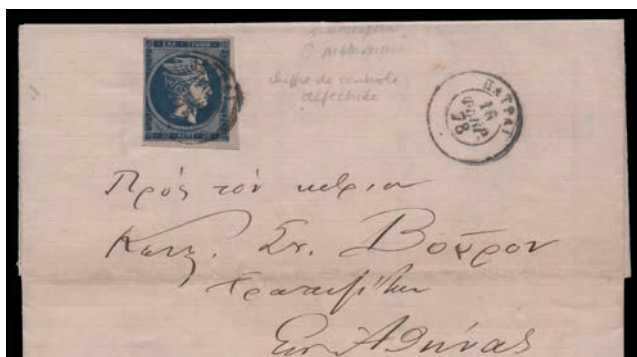 ΕΛΛ. ΓΡΑΜΜ.
20 ΛΕΠΤ. 20
chiffre de controle
défectueuse
ΠΑΤΡΑΙ
16
ΦΕΒΡ.
78
Πρὸς τὸν κύριον
Κωνς. Στ. Βοῦρον
Τραπεζίτην
Εἰς Ἀθήνας